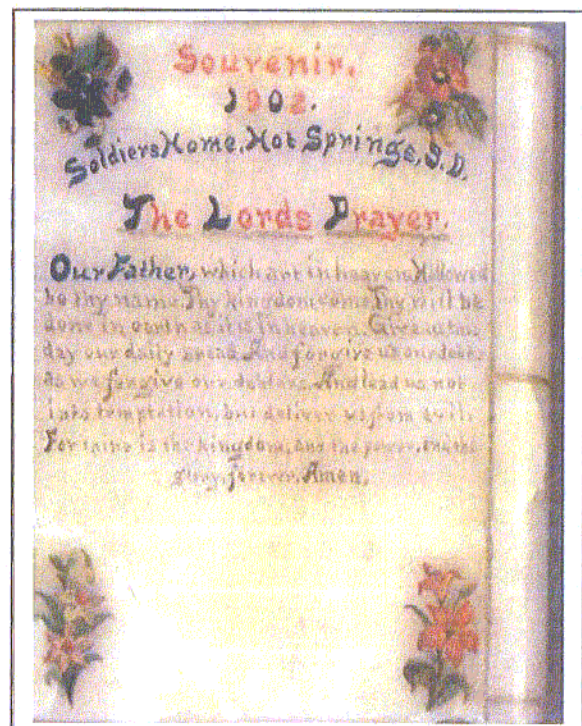 Souvenir.
1902.
Soldiers Home, Hot Springs, S.D.
The Lords Prayer.
Our Father, which art in heaven, Hallowed
be thy name. Thy kingdom come. Thy will be
done in earth as it is in heaven. Give us this
day our daily bread. And forgive us our debts
as we forgive our debtors. And lead us not
into temptation, but deliver us from evil.
For thine is the kingdom, and the power, and the
glory, forever. Amen.